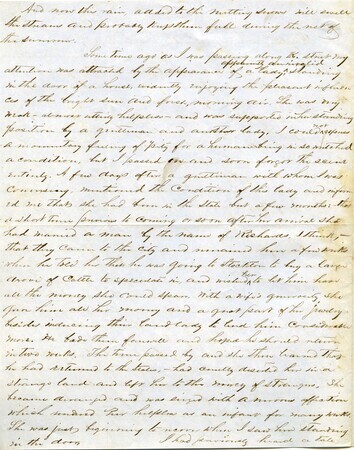 And now this rain, added to the melting snows will swell
the streams and probably keep them full during the rest of
the summer.
Some time ago as I was passing along the street my
attention was attracted by the appearance of a lady standing
apparently American
in the door of a house, mutely enjoying the pleasant influen-
ces of the bright sun and fresh, morning air. She was very
weak—almost utterly helpless and was supported in her standing
position by a gentleman and another lady. I could not repress
a momentary feeling of pity for a human being in so wretched
a condition, but I passed on and soon forgot the scene
entirely. A few days after a gentleman with whom I was
conversing mentioned the condition of the lady and inform-
ed me that she had been in the State but a few months. That
a short time previous to coming or soon after her arrival she
had married a man by the name of Richards, I think,—
that they came to the City and remained here a few weeks
when he told her that he was going to Stockton to buy a large
drove of Cattle to speculate in and wished her to let him have
all the money she could spare. With a wife's generosity, she
gave him all her money and a great part of her jewelry
besides inducing their land lady to lend him considerable
more. He bade them farewell and hoped he should return
in two weeks. The time passed by and she then learned that
he had returned to the States,—had cruelly deserted her in a
strange land and left her to the mercy of strangers. She
became deranged and was seized with a nervous affection
which rendered her helpless as an infant for many weeks.
She was just beginning to recover when I saw her standing
in the door.
I had previously heard a tale